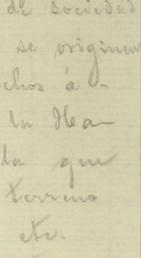 de sociedad
se originen
chos á -
la Ha-
la que
terreno
etc.